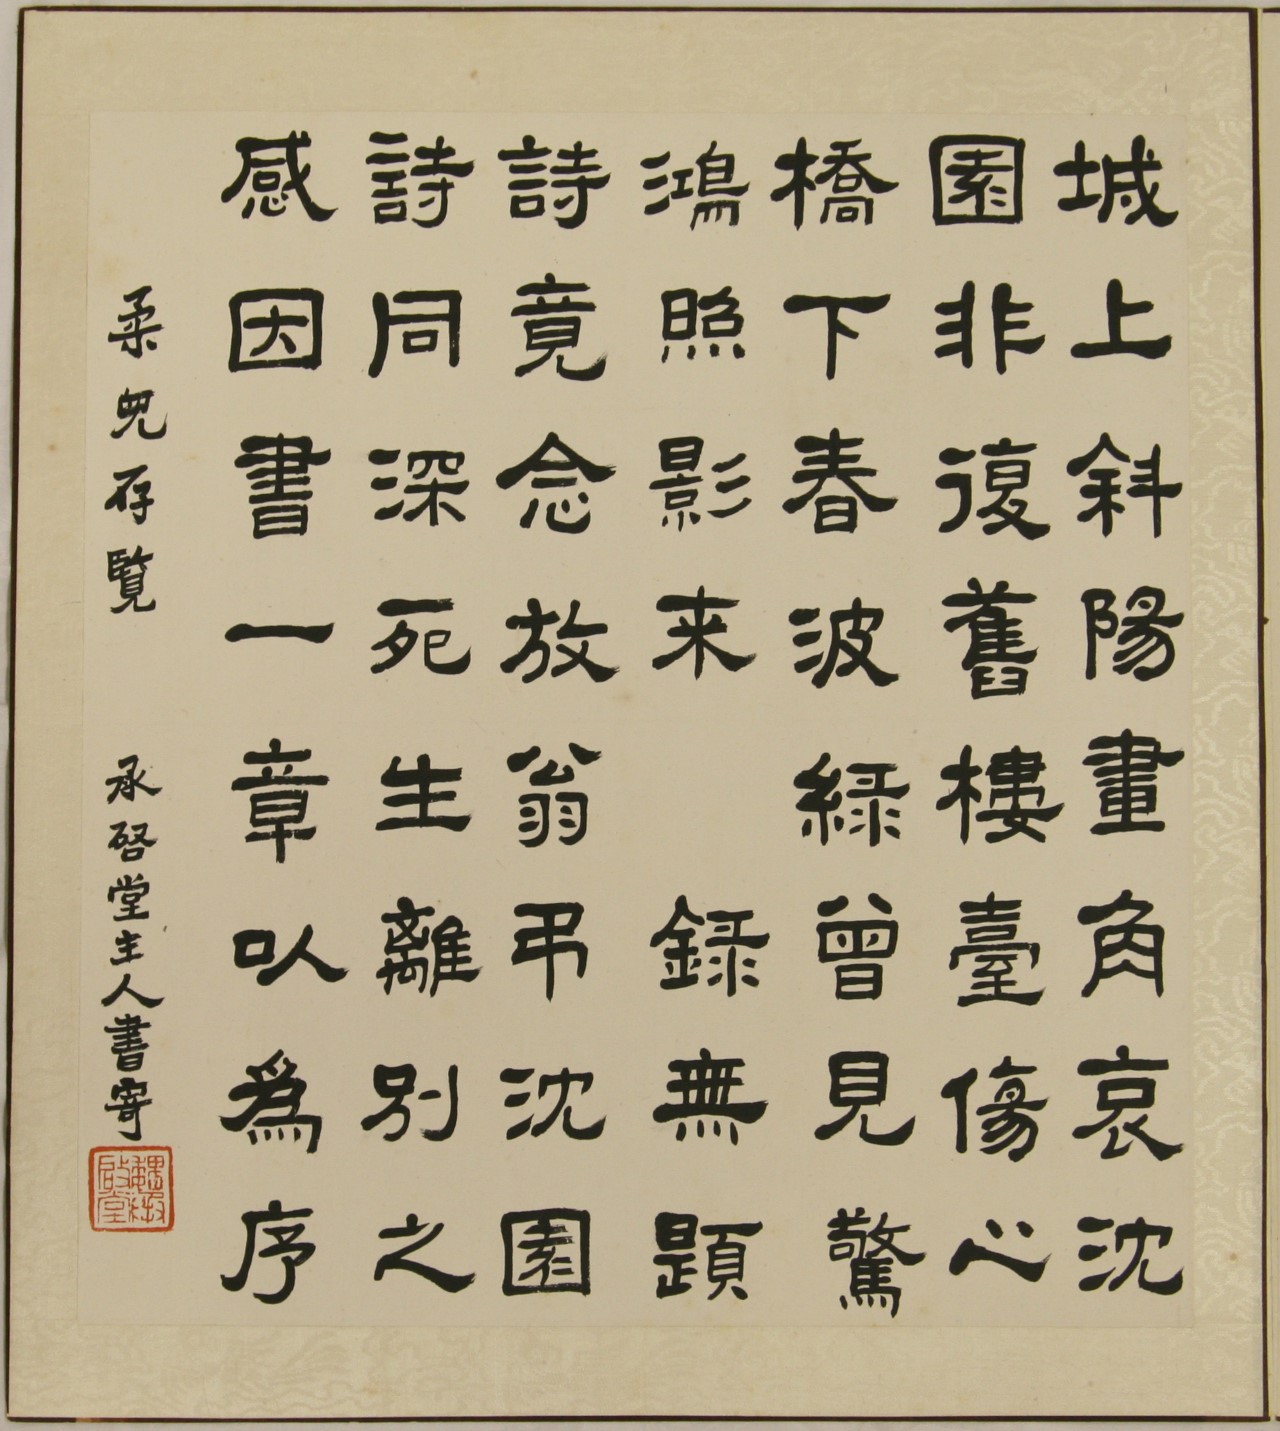 城上斜陽畫角哀沈
園非復舊樓臺傷心
橋下春波綠曾見驚
鴻照影来 錄無題
詩竟念放翁弔沈園
詩同深死生離別之
感因書一章以為序
柔兒存覽 承啓堂主人書寄